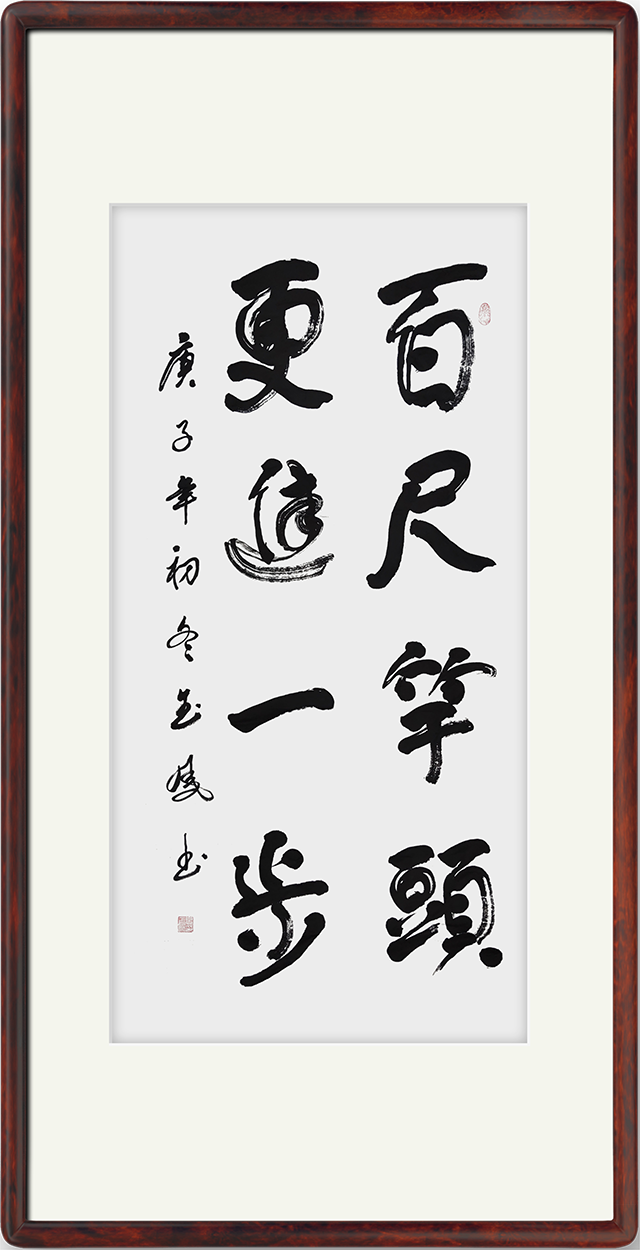 百尺竿頭
更進一步
庚子年初冬玉陵书